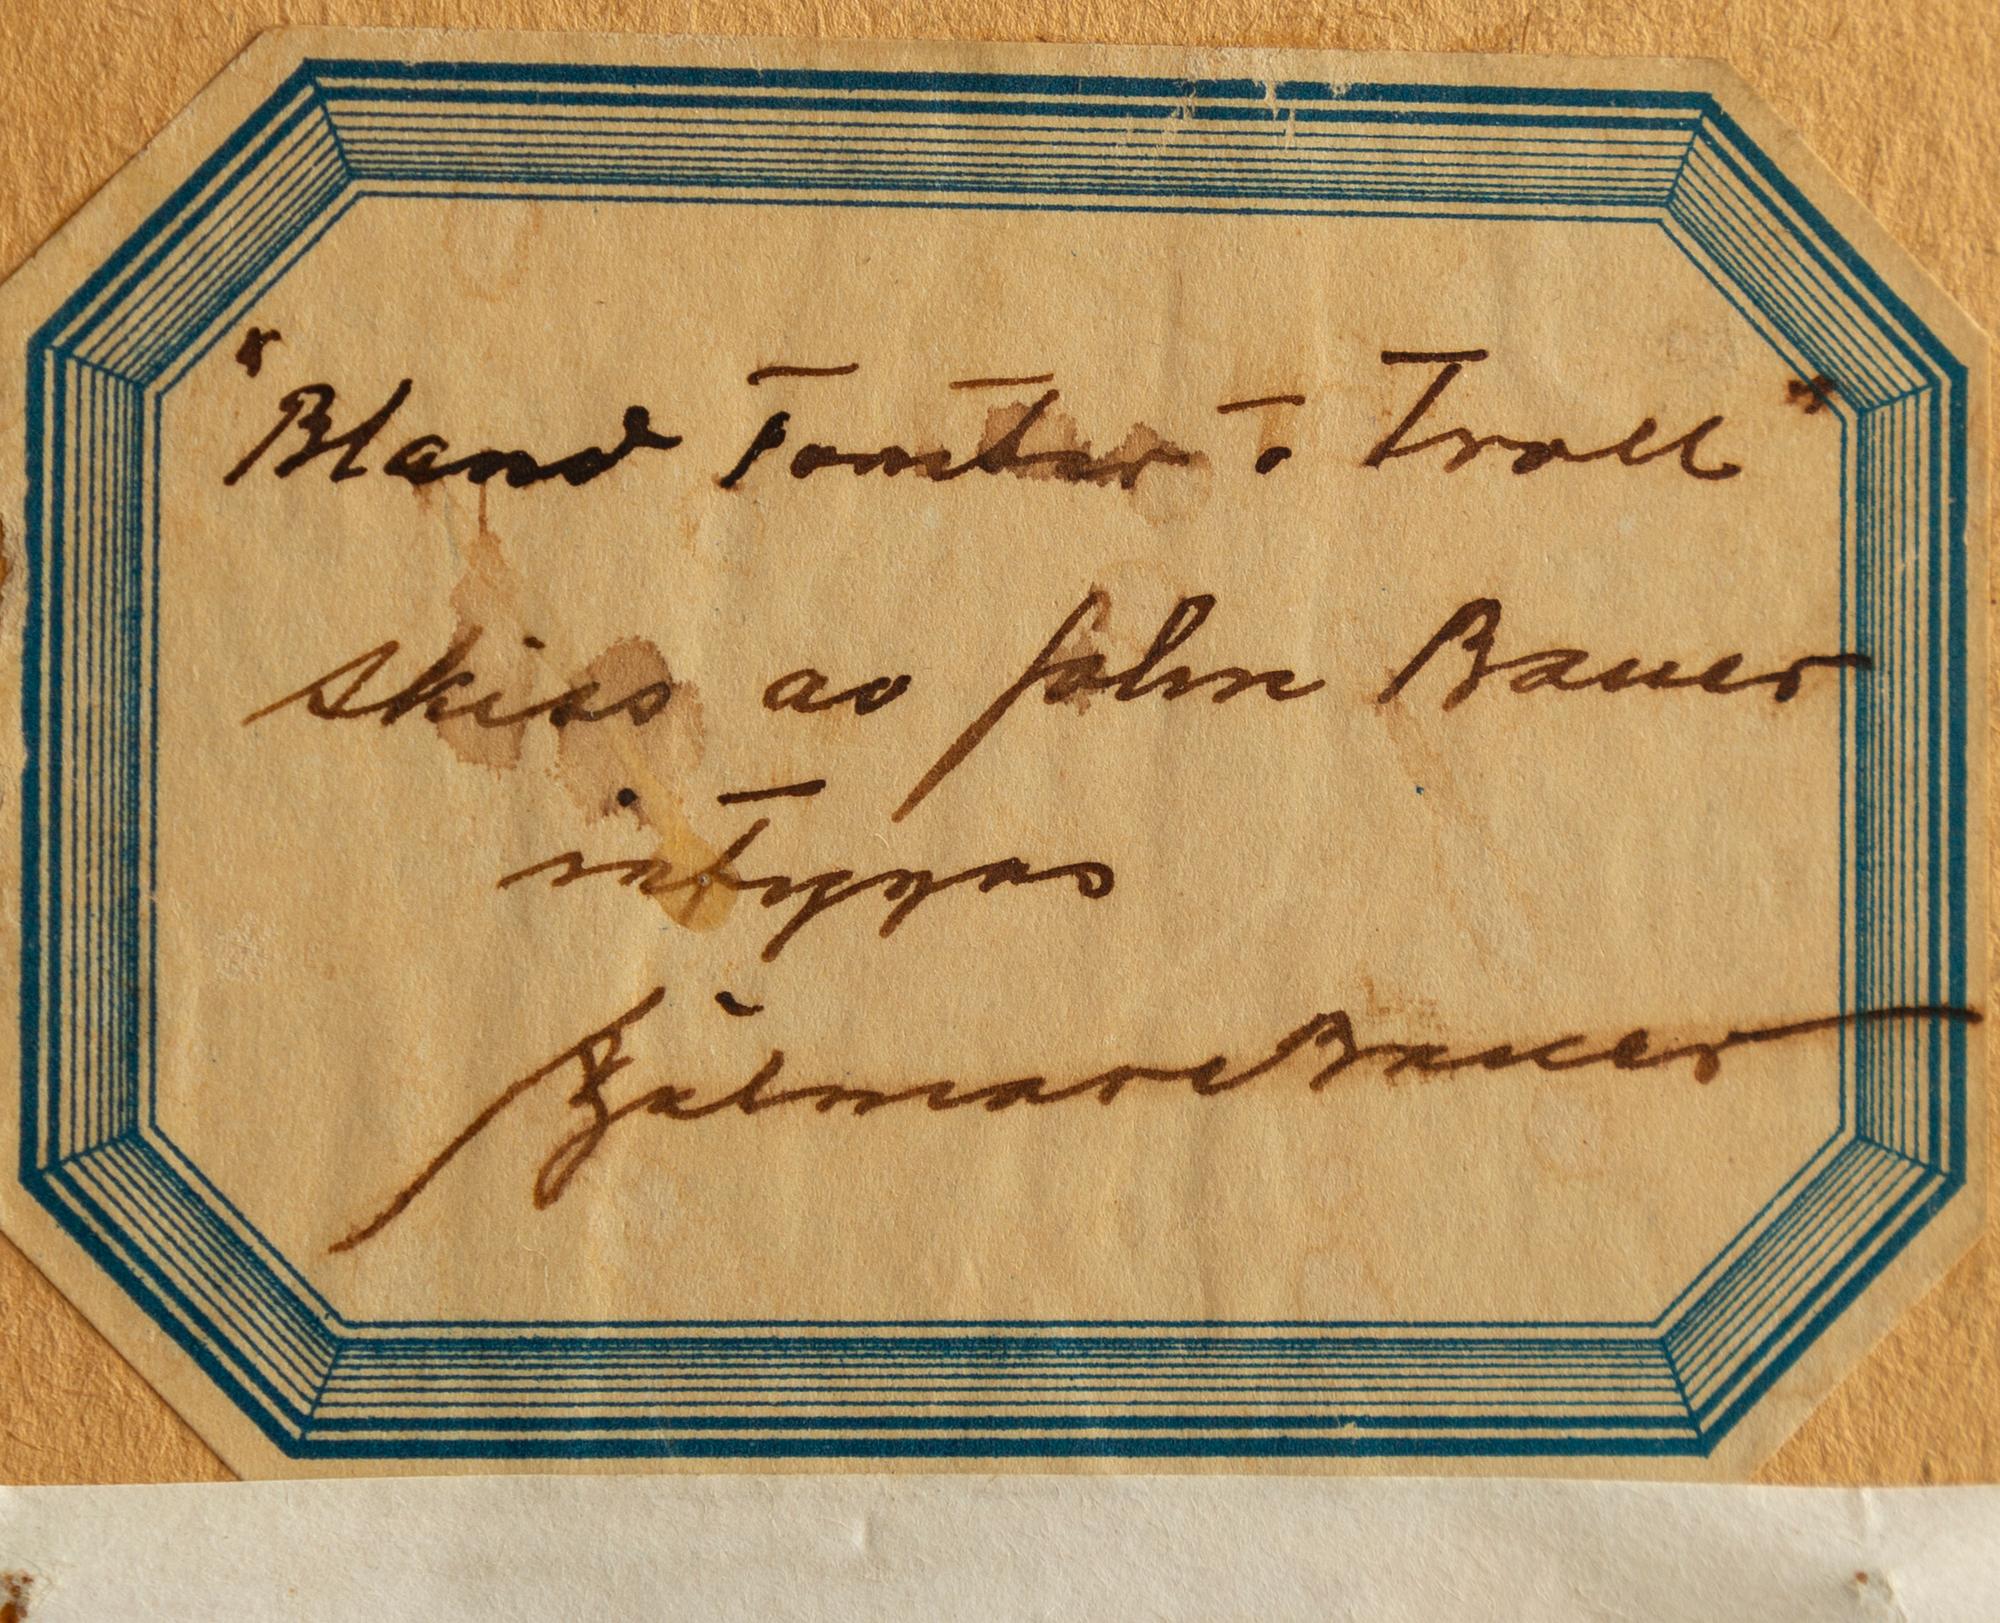 "Bland Tomtar o Troll"
skiss av John Bauer
intygas
Hjalmar Bauer